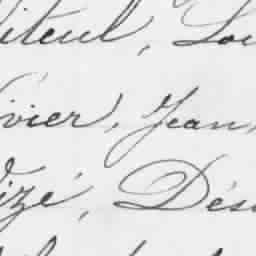 iteul, Lou
ivier, Jean,
izé, Dés